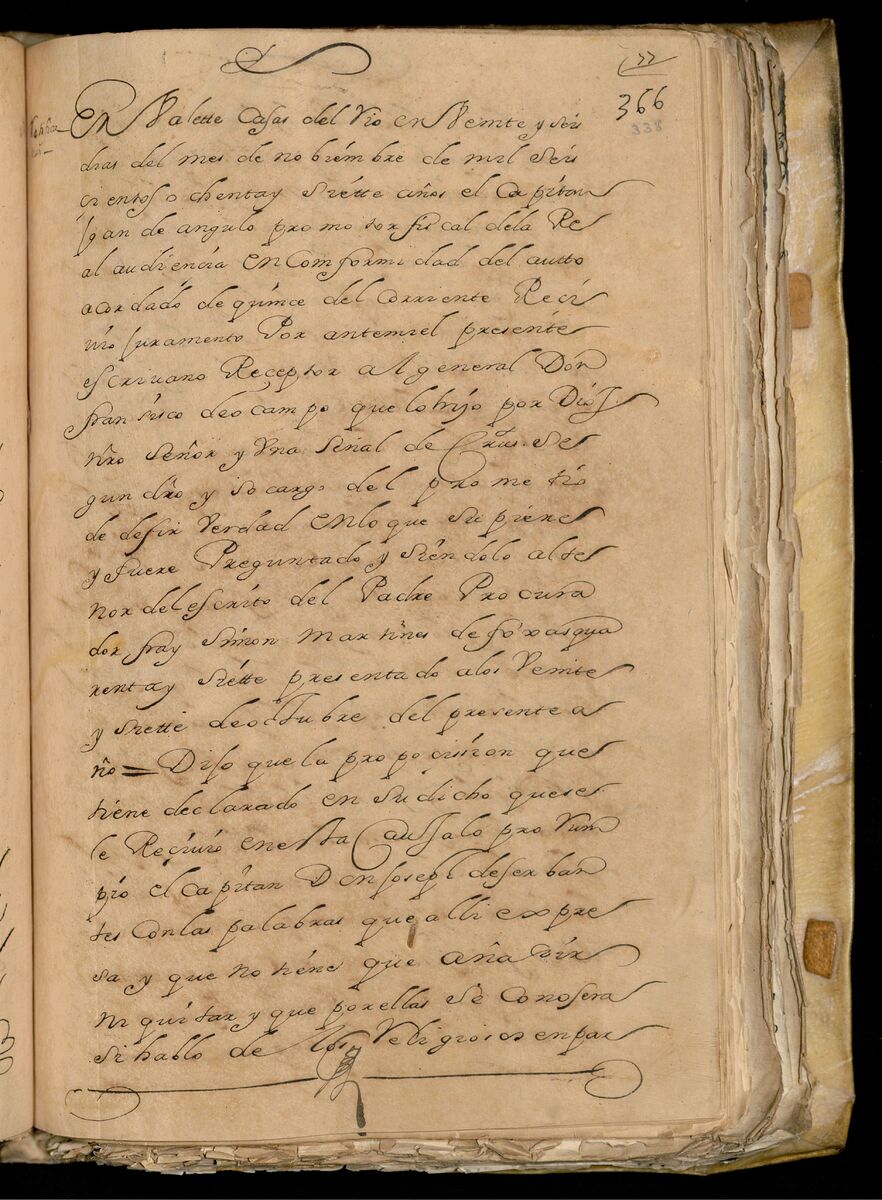 77
366
338
En Valette Casas del Rio en Veinte y seis
dias del mes de nobiembre de mil seis
cientos ochenta y siette años el Capitan
Juan de angulo promotor fiscal dela Re
al audiencia en Comformidad del autto
acordado de quince del corriente Reci
uio juramento Por antemi el presente
escriuano Receptor al general Don
fransisco de ocampo que lo hijo por Dios
nro señor y Vna señal de Crus se
gun dro y so cargo del prometio
de desir Verdad en lo que supiere
y fuere Preguntado y siendolo al te
nor del escrito del Padre Procura
dor fray simon martines de foxas qua
renta y siette presentado a los Veinte
y siette de octubre del presente a
ño = Dijo que la proposision que
tiene declarado en su dicho que se
le Reciuio en esta Caussa lo prorum
pio el capitan Don Joseph de serban
tes con las palabras que alli expre
sa y que no tiene que añadir
ni quitar y que por ellas se Conosera
si hablo de los Religiosos en par